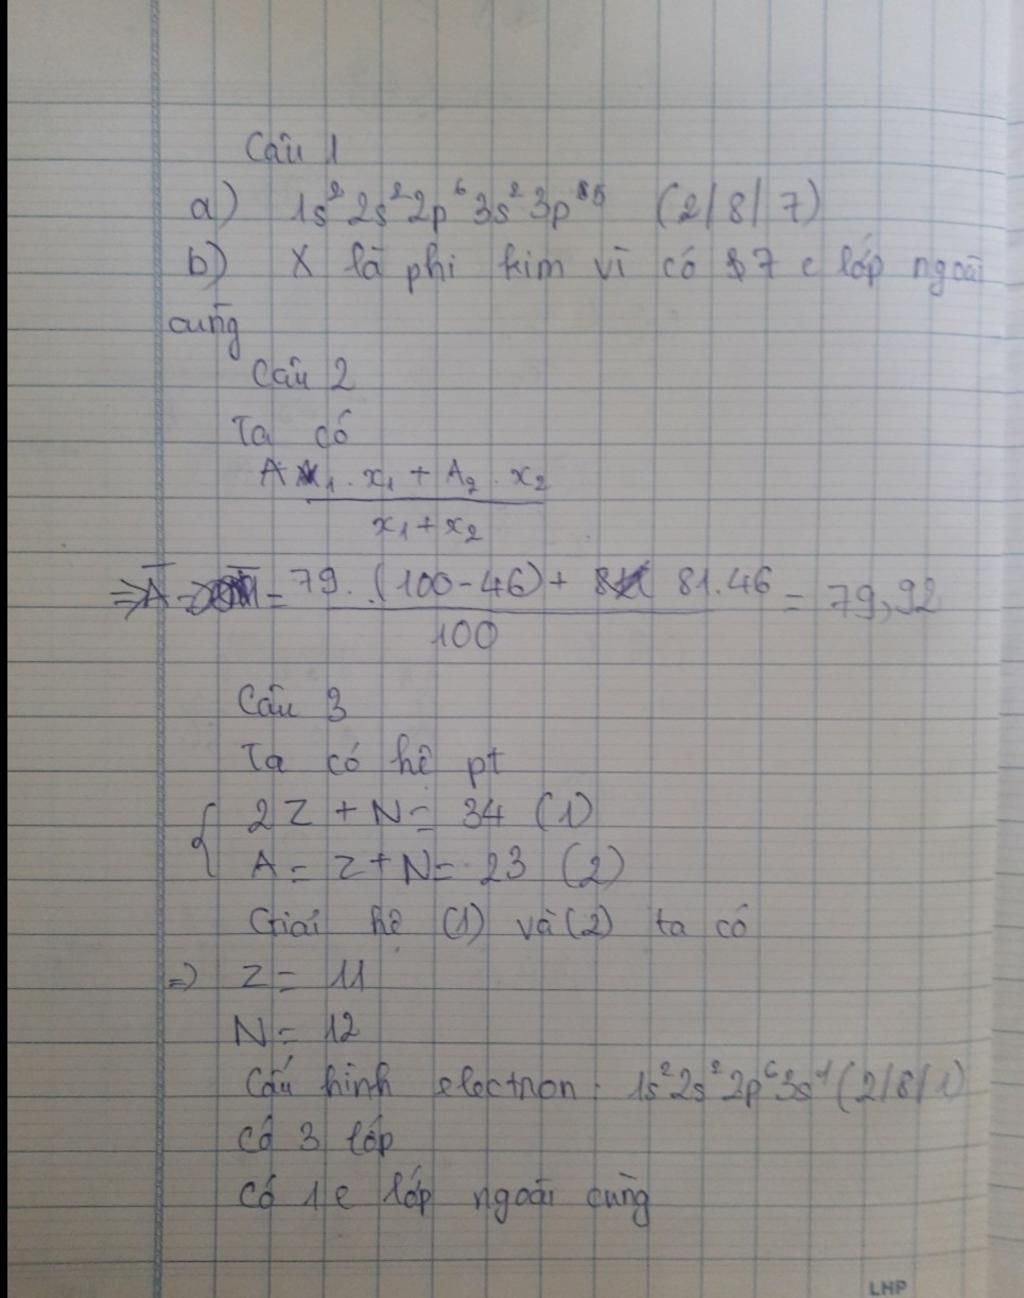 Câu 1
a) 1s² 2s² 2p⁶ 3s² 3p⁵ (2/8/7)
b) X là phi kim vì có 7 e lớp ngoài
cùng
Câu 2
Ta có
A₁ . x₁ + A₂ . x₂
x₁ + x₂
=> A̅ = 79 . (100 - 46) + 81.46 = 79,92
100
Câu 3
Ta có hệ pt
{ 2Z + N = 34 (1)
A = Z + N = 23 (2)
Giải hệ (1) và (2) ta có
=> Z = 11
N = 12
Cấu hình electron : 1s² 2s² 2p⁶ 3s¹ (2/8/1)
Có 3 lớp
Có 1 e lớp ngoài cùng
LHP